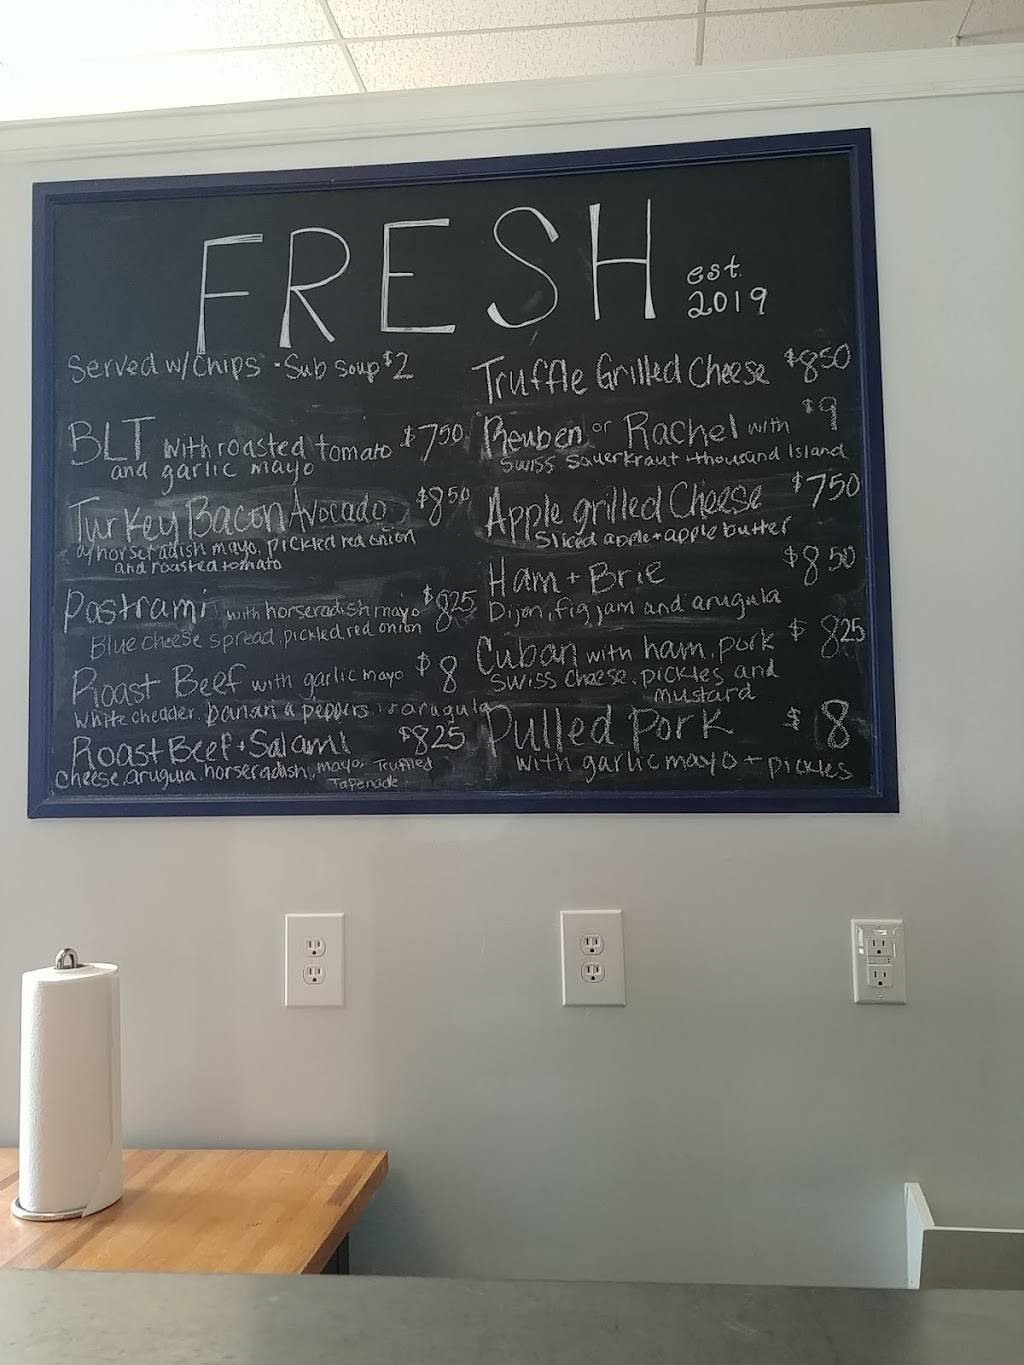 FRESH
est.
2019
Served w/chips - Sub soup $2
BLT with roasted tomato $7.50
and garlic mayo
Turkey Bacon Avocado $8.50
w/horseradish mayo, pickled red onion
and roasted tomato
Pastrami with horseradish mayo $8.25
Blue cheese spread, pickled red onion
Roast Beef with garlic mayo $8
white chedder, banana peppers + arugula
Roast Beef + Salami $8.25
cheese, arugula, horseradish, mayo, Truffled
Tapenade
Truffle Grilled Cheese $8.50
Reuben or Rachel with $9
Swiss Sauerkraut + thousand Island
Apple grilled Cheese $7.50
Sliced apple + apple butter
Ham + Brie $8.50
Dijon, fig jam and arugula
Cuban with ham, pork $8.25
swiss cheese, pickles and
mustard
Pulled Pork $8
with garlic mayo + pickles